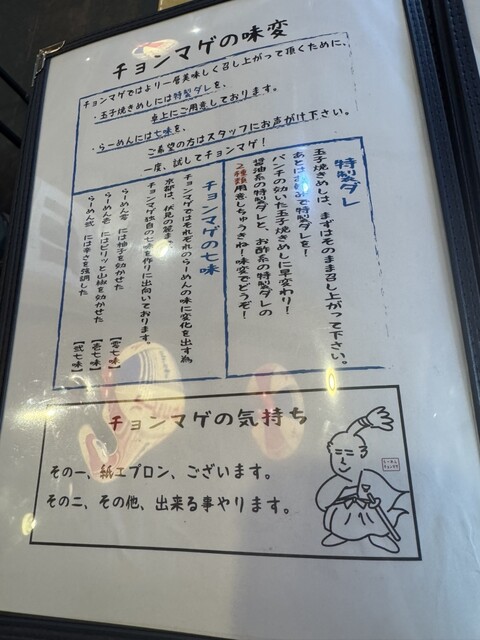 チョンマゲの味変
チョンマゲではより一層美味しく召し上がって頂くために、
・玉子焼きめしには特製ダレを、
卓上にご用意しております。
・らーめんには七味を、
ご希望の方はスタッフにお声がけ下さい。
一度、試してチョンマゲ！
特製ダレ
玉子焼きめしは、まずはそのまま召し上がって下さい。
あとはお好みで特製ダレを！
パンチの効いた玉子焼きめしに早変わり！
醤油系の特製ダレと、お酢系の特製ダレの
2種類用意しちゃうきね！味変でどうぞ！
チョンマゲの七味
チョンマゲではそれぞれのらーめんの味に変化を出す為
京都は、伏見の麓まで
チョンマゲ独自の七味を作りに出向いております。
らーめん零 には柚子を効かせた 【零七味】
らーめん壱 にはピリッと山椒を効かせた 【壱七味】
らーめん弐 には辛さを強調した 【弐七味】
チョンマゲの気持ち
その一、紙エプロン、ございます。
その二、その他、出来る事やります。